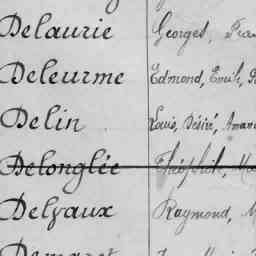 Delaurie Georges,
Deleurme Edmond, Emile,
Delin Louis, Désiré,
Delonglée Théophile,
Delvaux Raymond,